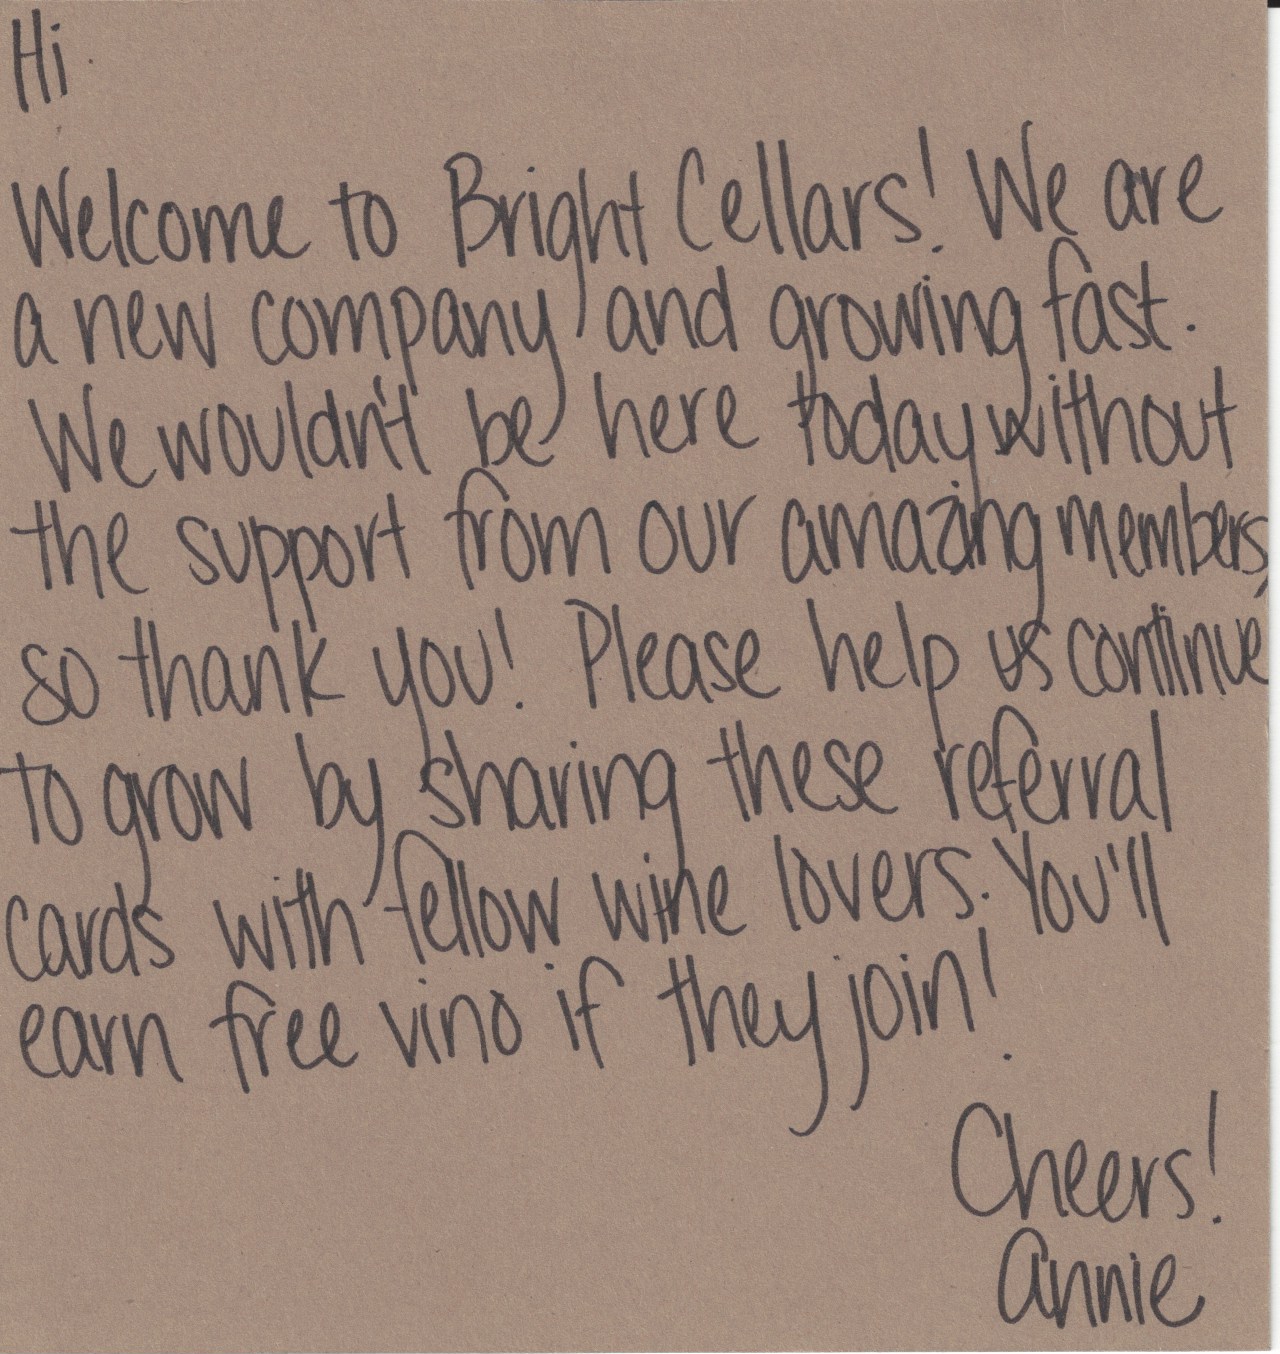 Hi
Welcome to Bright Cellars! We are
a new company and growing fast.
We wouldn't be here today without
the support from our amazing members,
so thank you! Please help us continue
to grow by sharing these referral
cards with fellow wine lovers. You'll
earn free vino if they join!
Cheers!
Annie